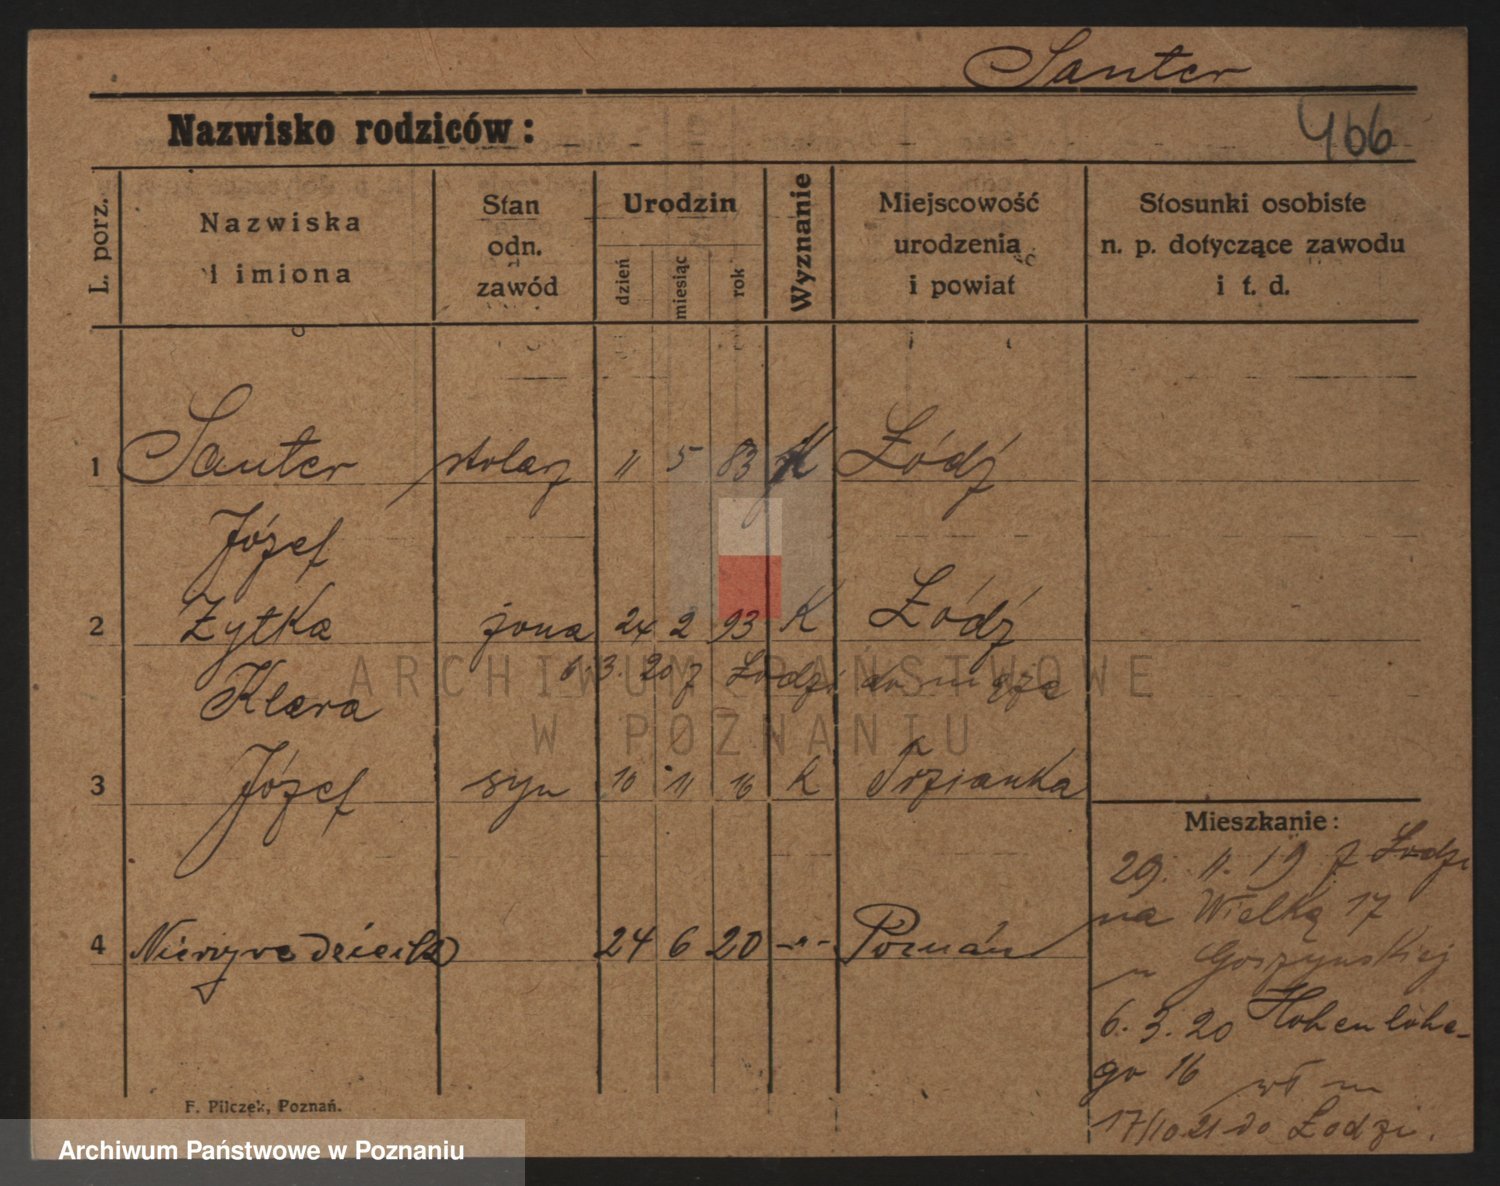 Santer
Nazwisko rodziców:
466
L. porz.
Nazwiska
i imiona
Stan
odn.
zawód
Urodzin
dzień
miesiąc
rok
Wyznanie
Miejscowość
urodzenia
i powiat
Stosunki osobiste
n. p. dotyczące zawodu
i t. d.
1 Santer stolarz 11 5 83 K Łódź
Józef
2 Zytka żona 24 2 93 K Łódź
6. 3. 20 z Łodzi do męża
Klara
3 Józef syn 10 11 16 k Trzianka
4 Nieżywe dziecko 24 6 20 -"- Poznań
Mieszkanie:
29. 11. 19 z Łodzi
na Wielką 17
u Goszynskiej
6. 3. 20 Hohenlohe-
go 16
wł m
17/10 21 do Łodzi.
F. Pilczek, Poznań.
ARCHIWUM PAŃSTWOWE
W POZNANIU
Archiwum Państwowe w Poznaniu